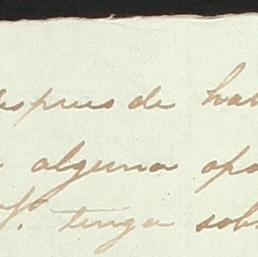 despues de hab
alguna opo
Vd. tenga sob